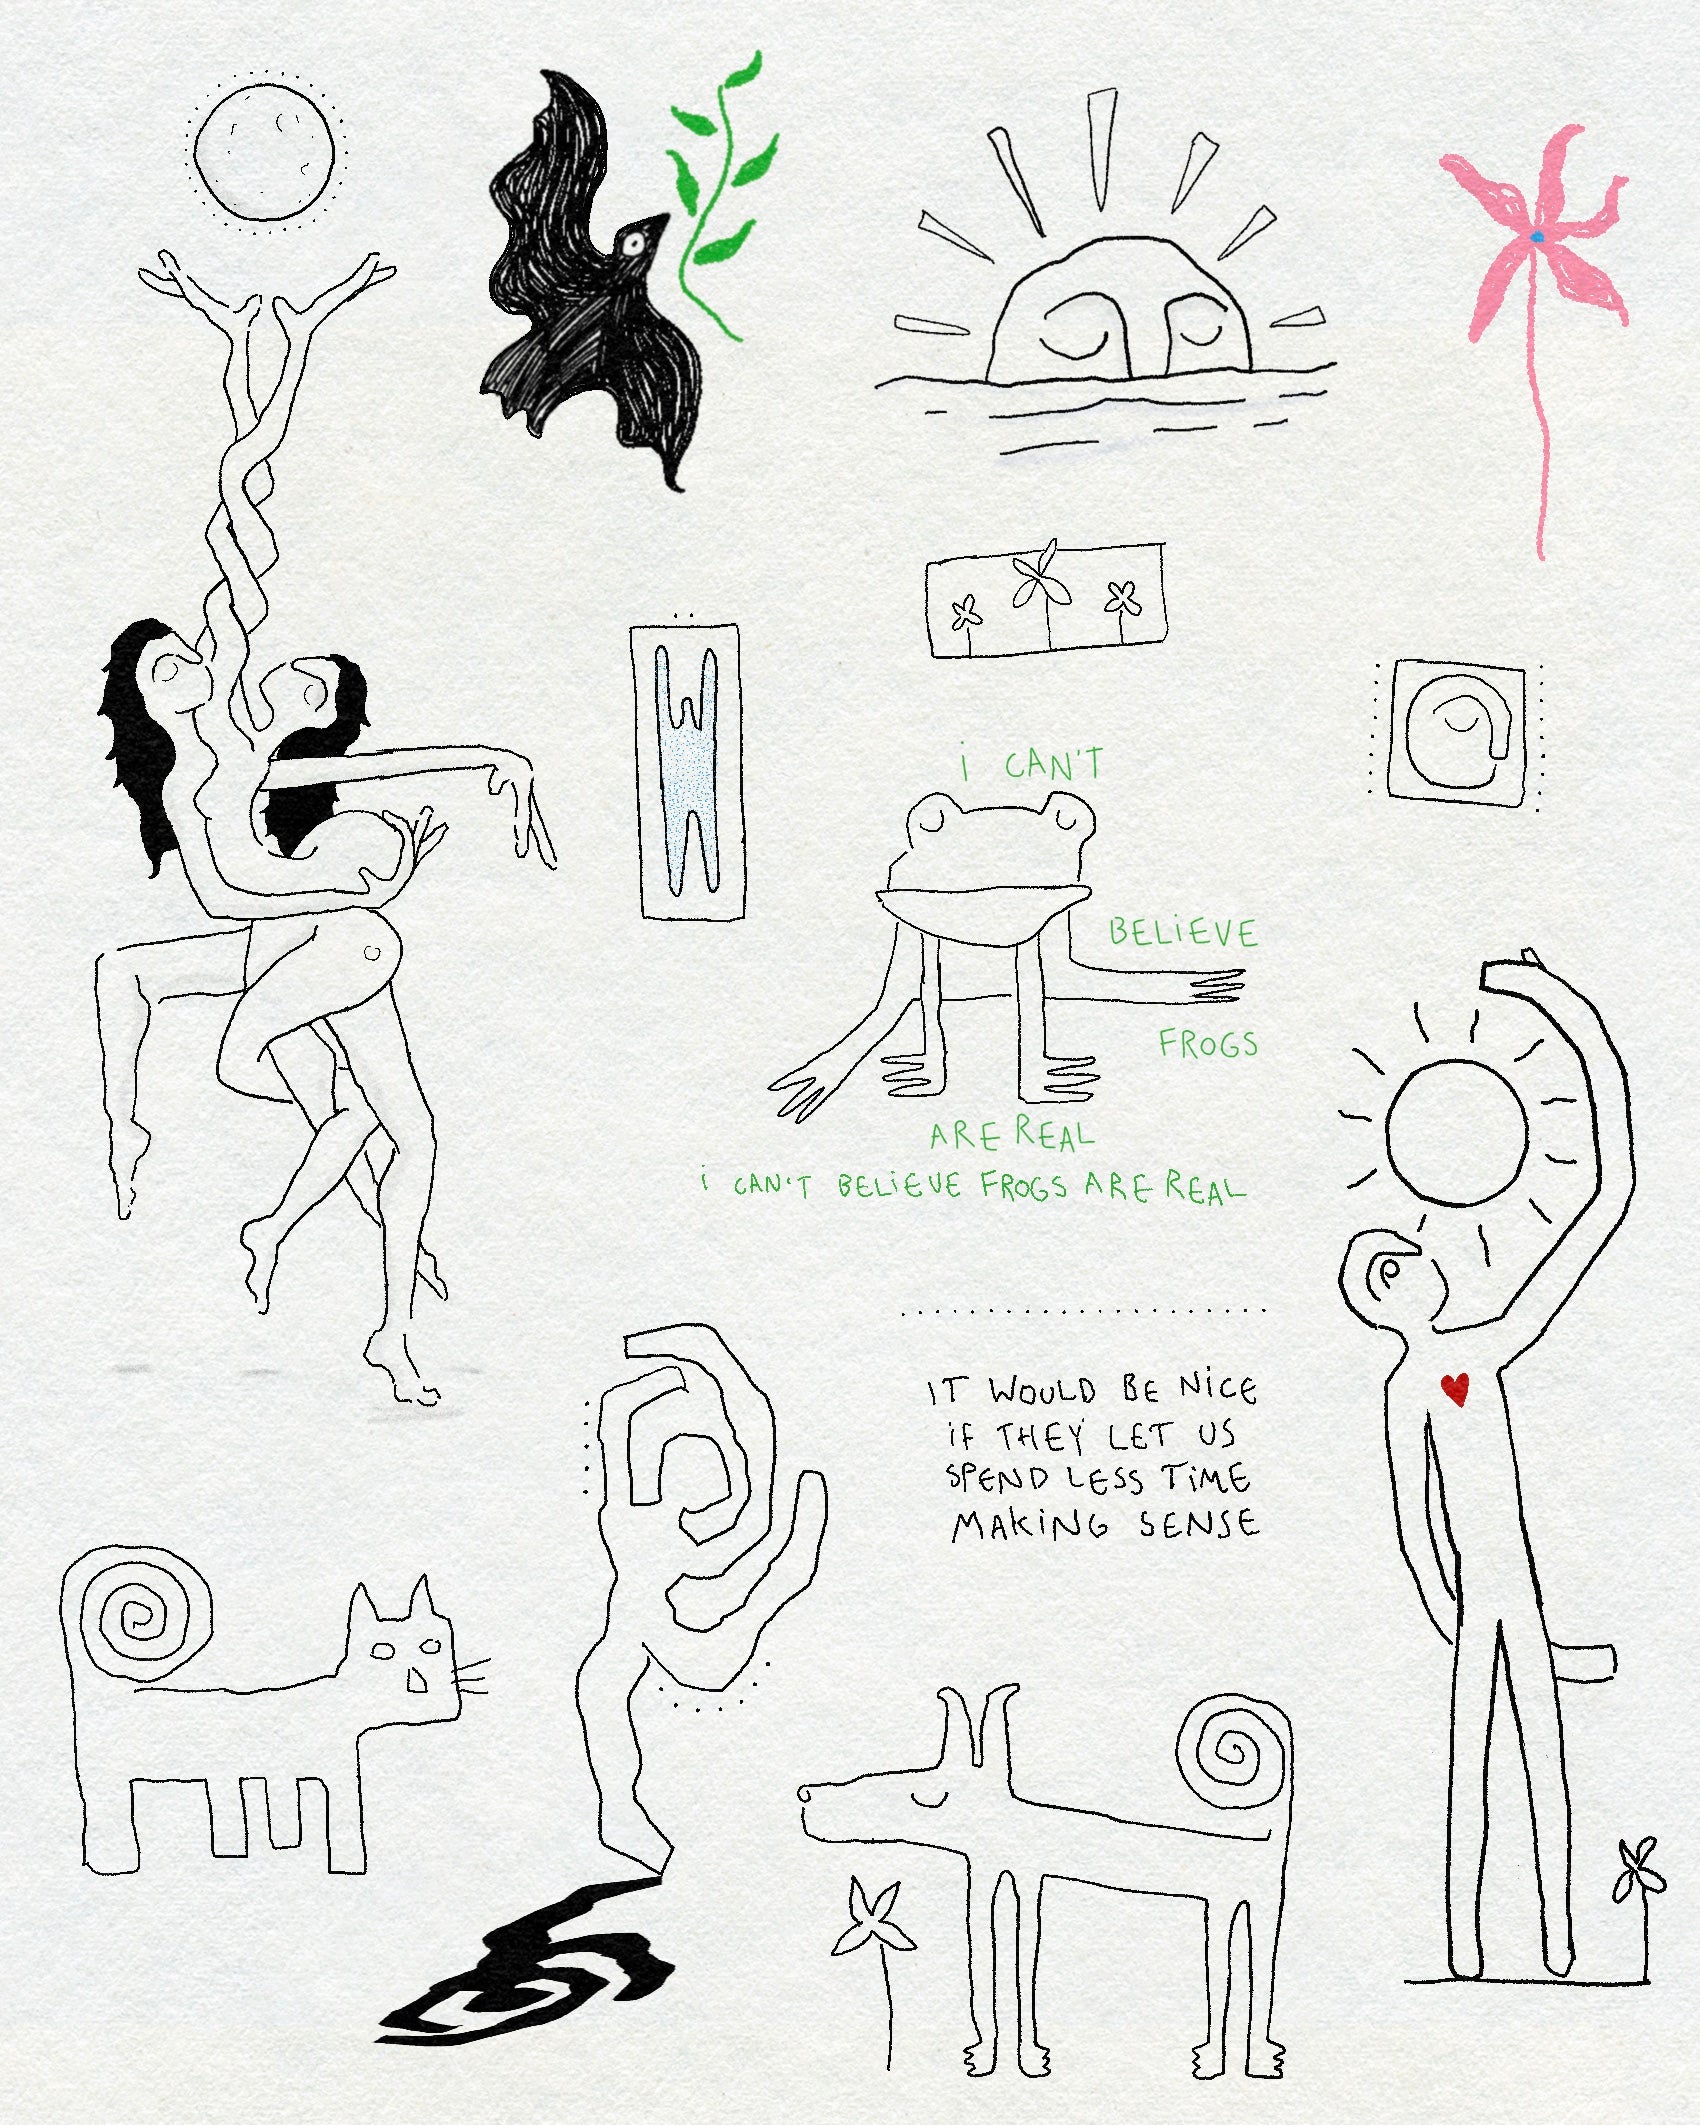 i CAN'T
BELiEVE
FROGS
ARE REAL
i CAN'T BELiEVE FROGS ARE REAL
IT WOULD BE NiCE
iF THEY LET US
SPEND LESS TiME
MAKiNG SENSE